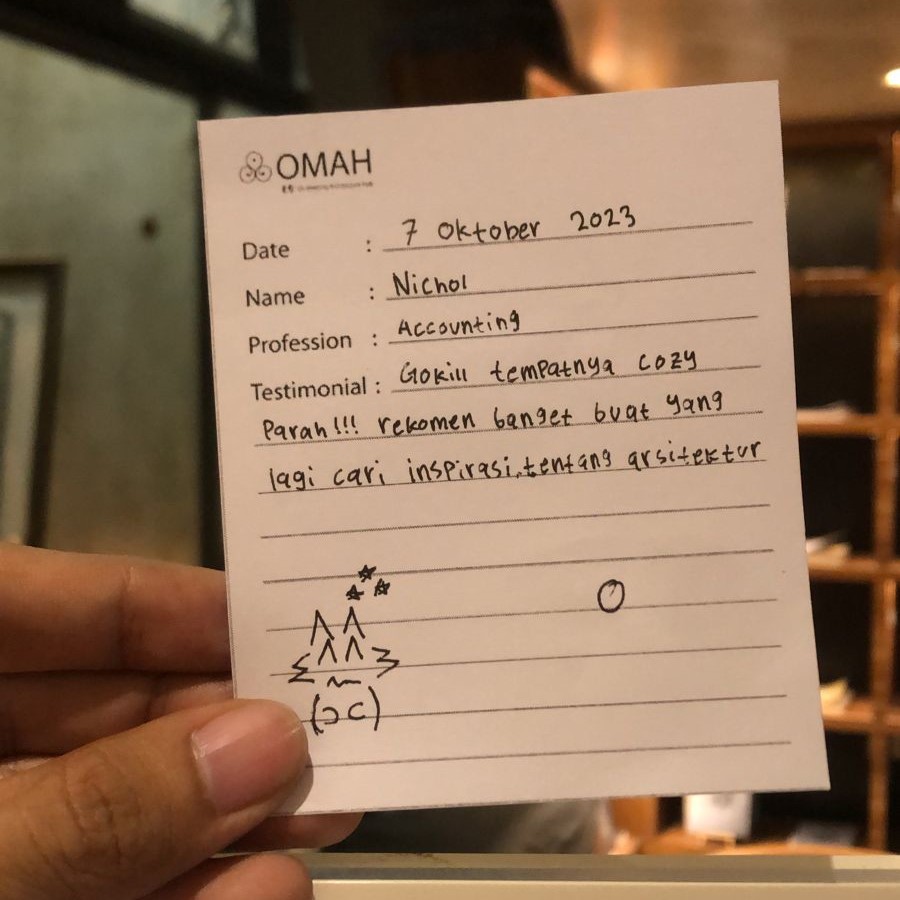 OMAH
Date : 7 Oktober 2023
Name : Nichol
Profession : Accounting
Testimonial : Gokill tempatnya cozy
Parah!!! rekomen banget buat yang
lagi cari inspirasi tentang arsitektur